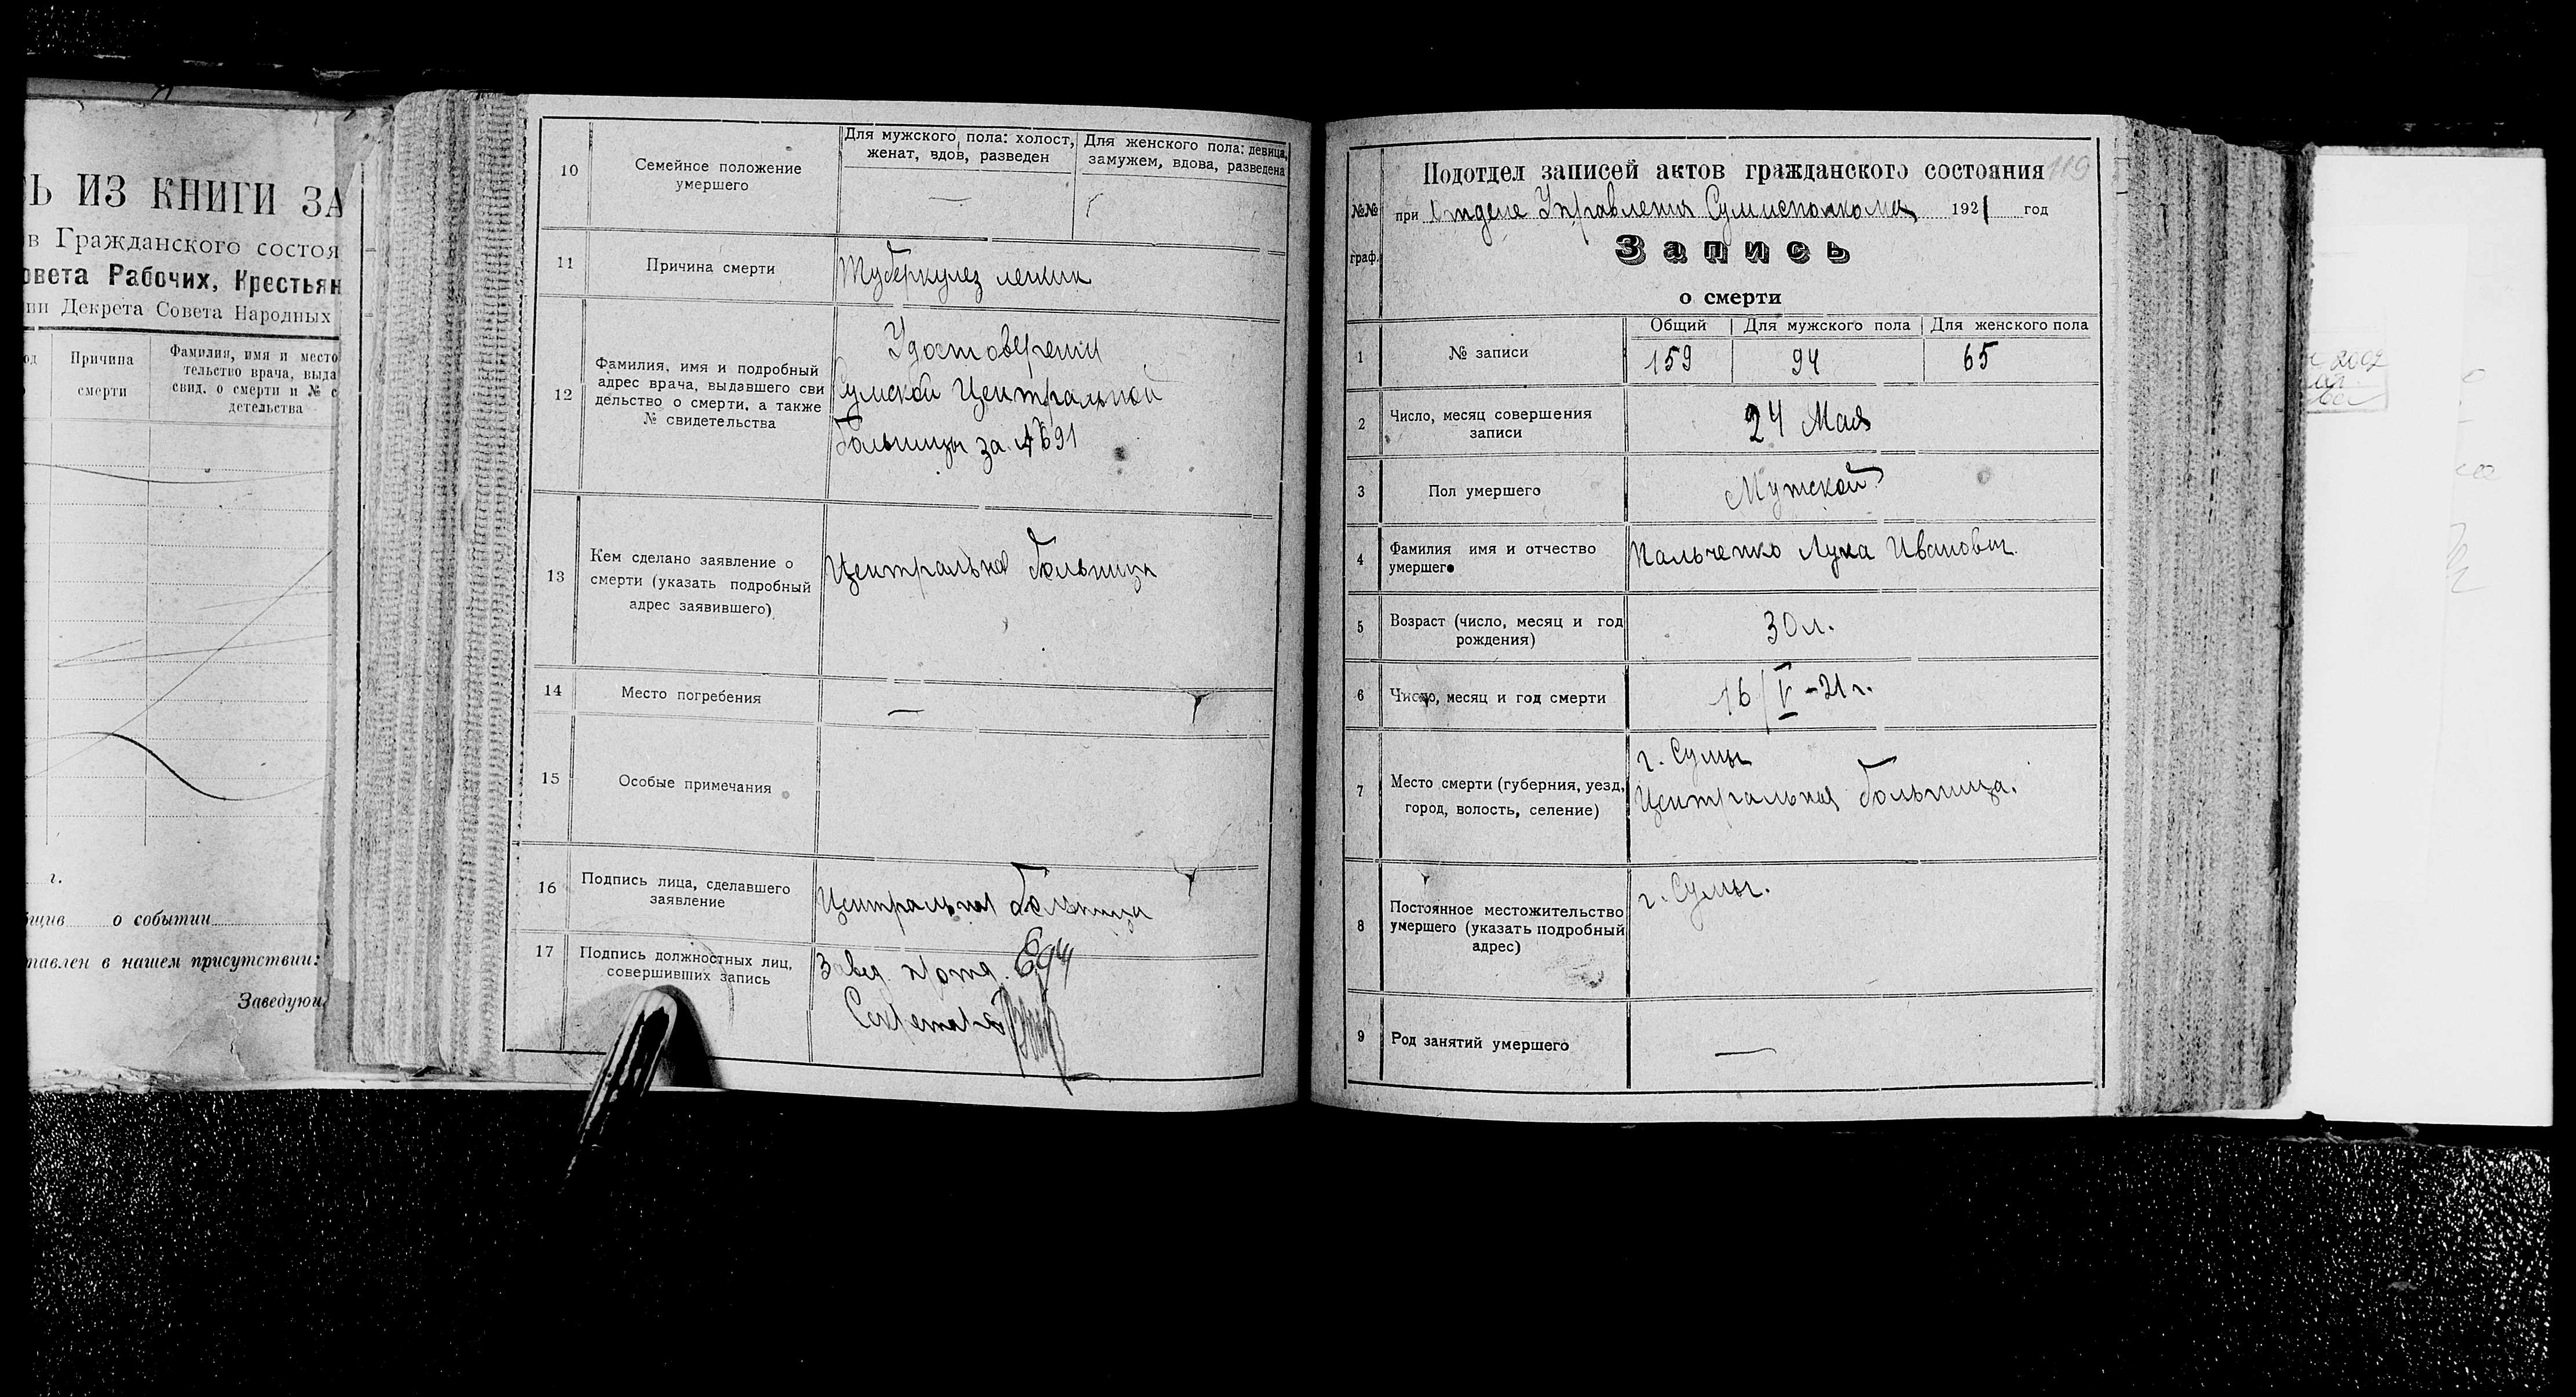 Ь ИЗ КНИГИ ЗА
в Гражданского состоя
овета Рабочих, Крестьян
ии Декрета Совета Народных
од
Причина
смерти
Фамилия, имя и место
тельство врача, выда
свид. о смерти и № с
детельства
г.
бщив о событии
тавлен в нашем присутствии:
Заведующ
10
Семейное положение
умершего
Для мужского пола: холост,
женат, вдов, разведен
Для женского пола: девица,
замужем, вдова, разведена
—
11
Причина смерти
Туберкулез легких
12
Фамилия, имя и подробный
адрес врача, выдавшего сви
дельство о смерти, а также
№ свидетельства
Удостоверении
Сумской Центральной
больницы за №691
13
Кем сделано заявление о
смерти (указать подробный
адрес заявившего)
Центральная больница
14
Место погребения
—
15
Особые примечания
16
Подпись лица, сделавшего
заявление
Центральная больница
17
Подпись должностных лиц,
совершивших запись
Завед. п/отд.
Секретарь
119
Подотдел записей актов гражданского состояния
№№
граф.
при Отделе Управления Сумисполкома 1921 год
Запись
о смерти
1
№ записи
Общий
Для мужского пола
Для женского пола
159
94
65
2
Число, месяц совершения
записи
24 Мая
3
Пол умершего
Мужской
4
Фамилия имя и отчество
умершего
Пальченко Лука Иванович.
5
Возраст (число, месяц и год
рождения)
30 л.
6
Число, месяц и год смерти
16/V-21 г.
7
Место смерти (губерния, уезд,
город, волость, селение)
г. Сумы
Центральная больница.
8
Постоянное местожительство
умершего (указать подробный
адрес)
г. Сумы.
9
Род занятий умершего
—